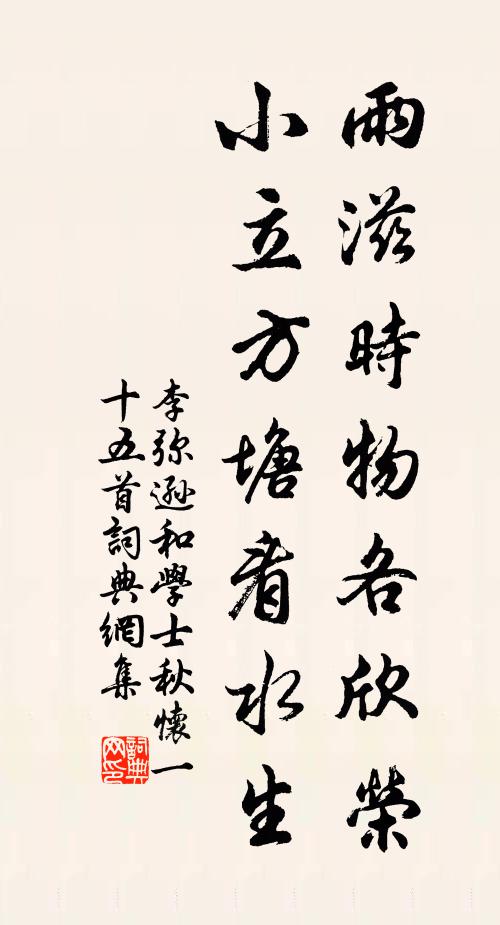 雨滋時物各欣榮
小立方塘看水生
李弥遜和學士秋懷一
十五首詞典網集
詞典
网印